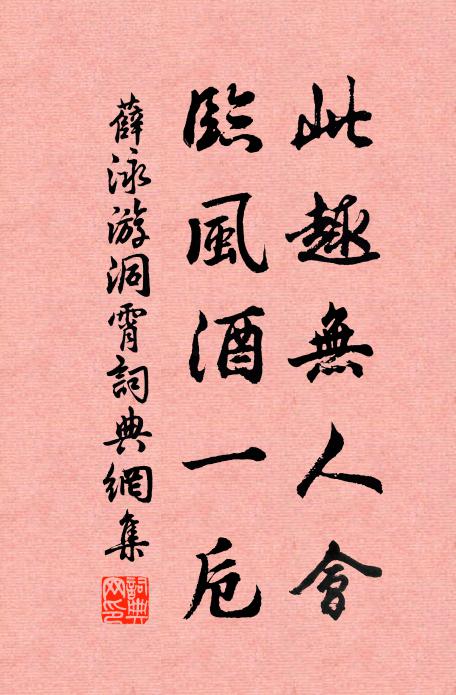 此趣無人會
臨風酒一卮
薛泳游洞霄詞典網集
詞典網印